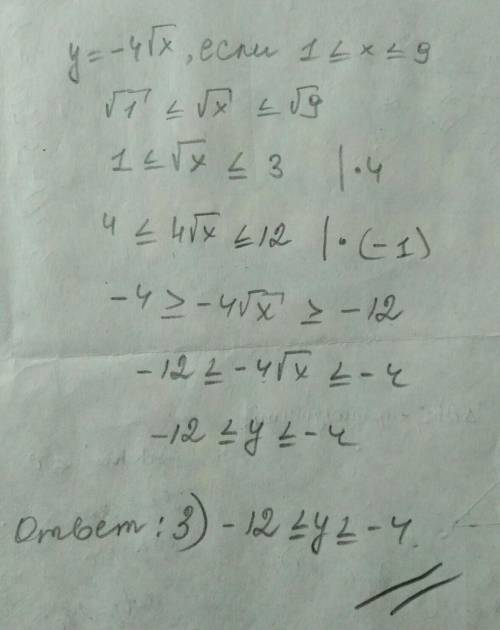 y = -4√x, если 1 ≤ x ≤ 9
√1 ≤ √x ≤ √9
1 ≤ √x ≤ 3 | · 4
4 ≤ 4√x ≤ 12 | · (-1)
-4 ≥ -4√x ≥ -12
-12 ≤ -4√x ≤ -4
-12 ≤ y ≤ -4
Ответ: 3) -12 ≤ y ≤ -4